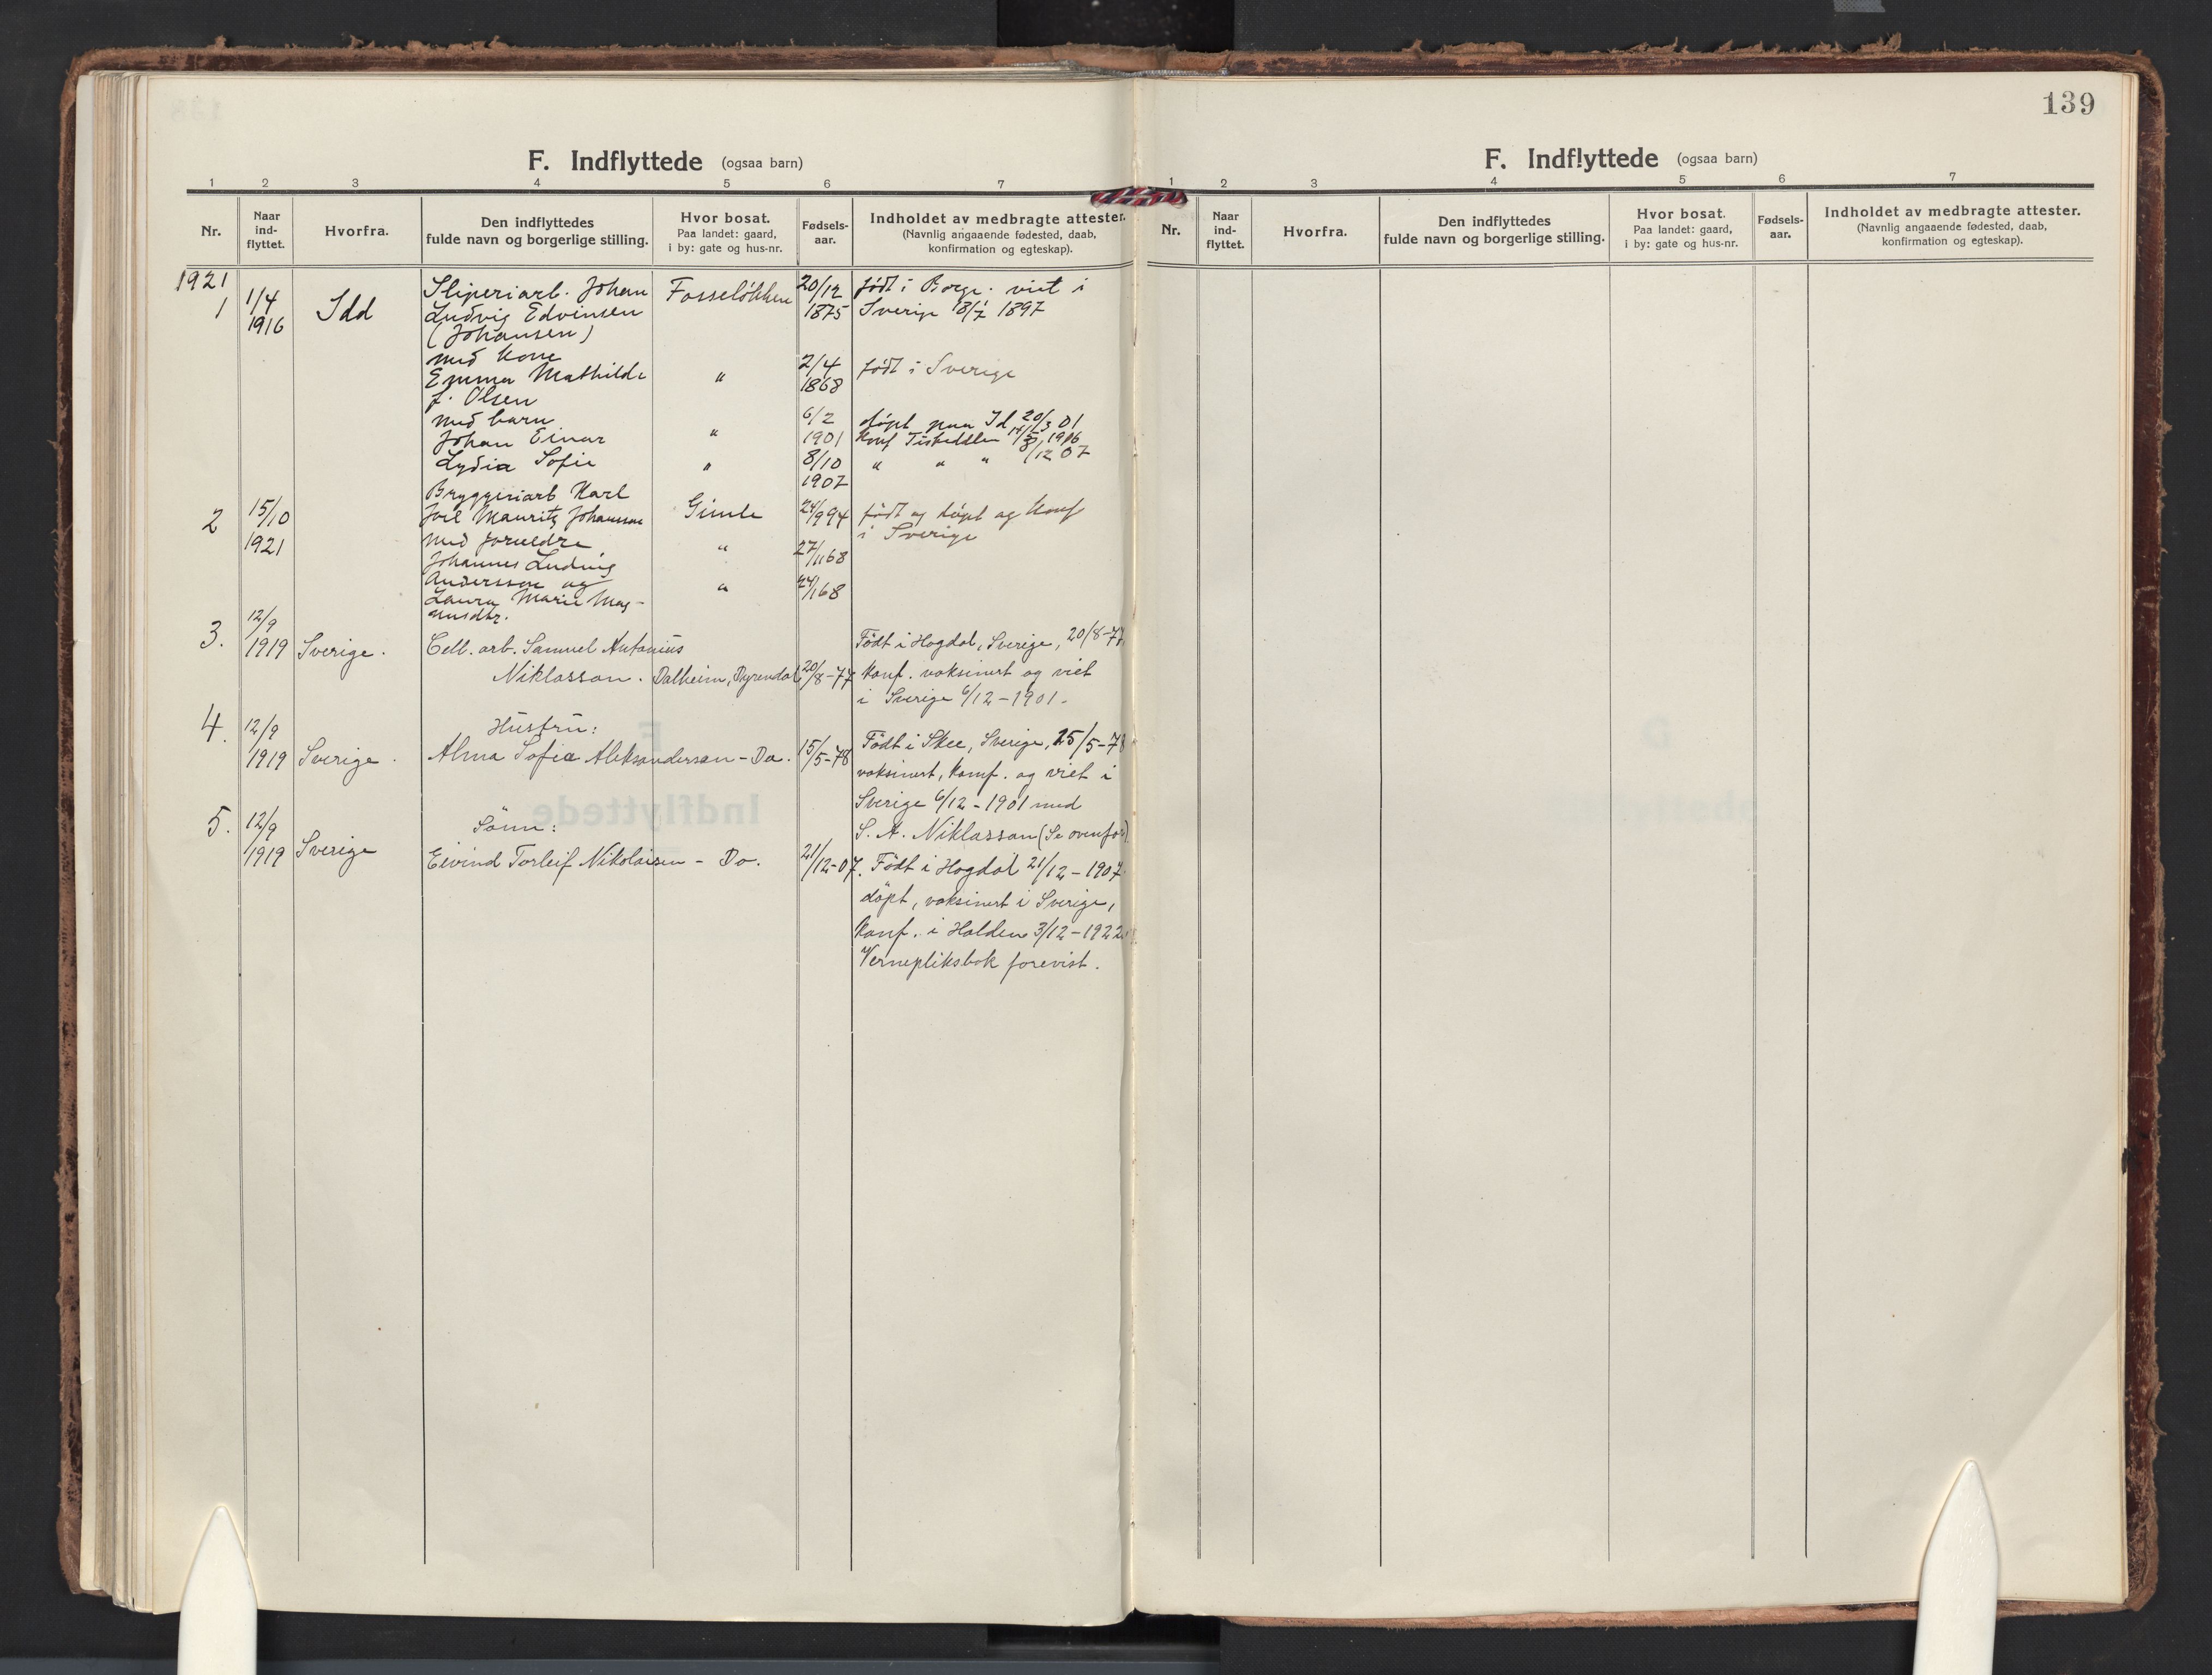 139
F. Indflyttede (ogsaa barn)
1 2 3 4 5 6 7
Nr. Naar ind-flyttet. Hvorfra. Den indflyttedes fulde navn og borgerlige stilling. Hvor bosat. Paa landet: gaard, i by: gate og hus-nr. Fødsels-aar. Indholdet av medbragte attester. (Navnlig angaaende fødested, daab, konfirmation og egteskap).
1921
1 1/4 Idd Sliperiarb. Johan Fosseløkken 20/12 født i Borge. viet i
1916 Ludvig Edvinsen 1875 Sverige 18/7 1897
(Johansen)
med kone 2/4
Emma Mathilde " 1868 født i Sverige
f. Olsen
med barn 6/2 døpt paa Id 20/3 01
Johan Einar " 1901 Konf Tistedalen 1916
Lydia Sofie " 8/10 " " " 8/12 07
1907
Bryggeriarb Karl
2 15/10 Joel Mauritz Johansson Gimle 24/9 94 født og døpt og Konf
1921 med foreldre " 27/11 68 i Sverige
Johannes Ludvig
Andersson og " 24/1 68
Laura Marie Mag-
nusdtr.
3. 12/9
1919 Sverige. Cell. arb. Samuel Antonius Født i Hogdal, Sverige, 20/8-77
Niklasson. Dalheim, Dyrendal 20/8-77 Konf. vaksinert og viet
i Sverige 6/12-1901.
4. 12/9 Hustru:
1919 Sverige. Alma Sofia Aleksanderson - Do. 15/5-78 Født i Skee, Sverige, 15/5-78
vaksinert, Konf. og viet i
Sverige 6/12-1901 med
5. 12/9 Sönn: S. A. Niklasson (Se ovenfor)
1919 Sverige Eivind Torleif Nikolaisen - Do. 21/12-07. Født i Hogdal 21/12-1907.
døpt, vaksinert i Sverige,
Konf. i Halden 3/12-1922.
Vernepliksbok forevist.
F. Indflyttede (ogsaa barn)
1 2 3 4 5 6 7
Nr. Naar ind-flyttet. Hvorfra. Den indflyttedes fulde navn og borgerlige stilling. Hvor bosat. Paa landet: gaard, i by: gate og hus-nr. Fødsels-aar. Indholdet av medbragte attester. (Navnlig angaaende fødested, daab, konfirmation og egteskap).